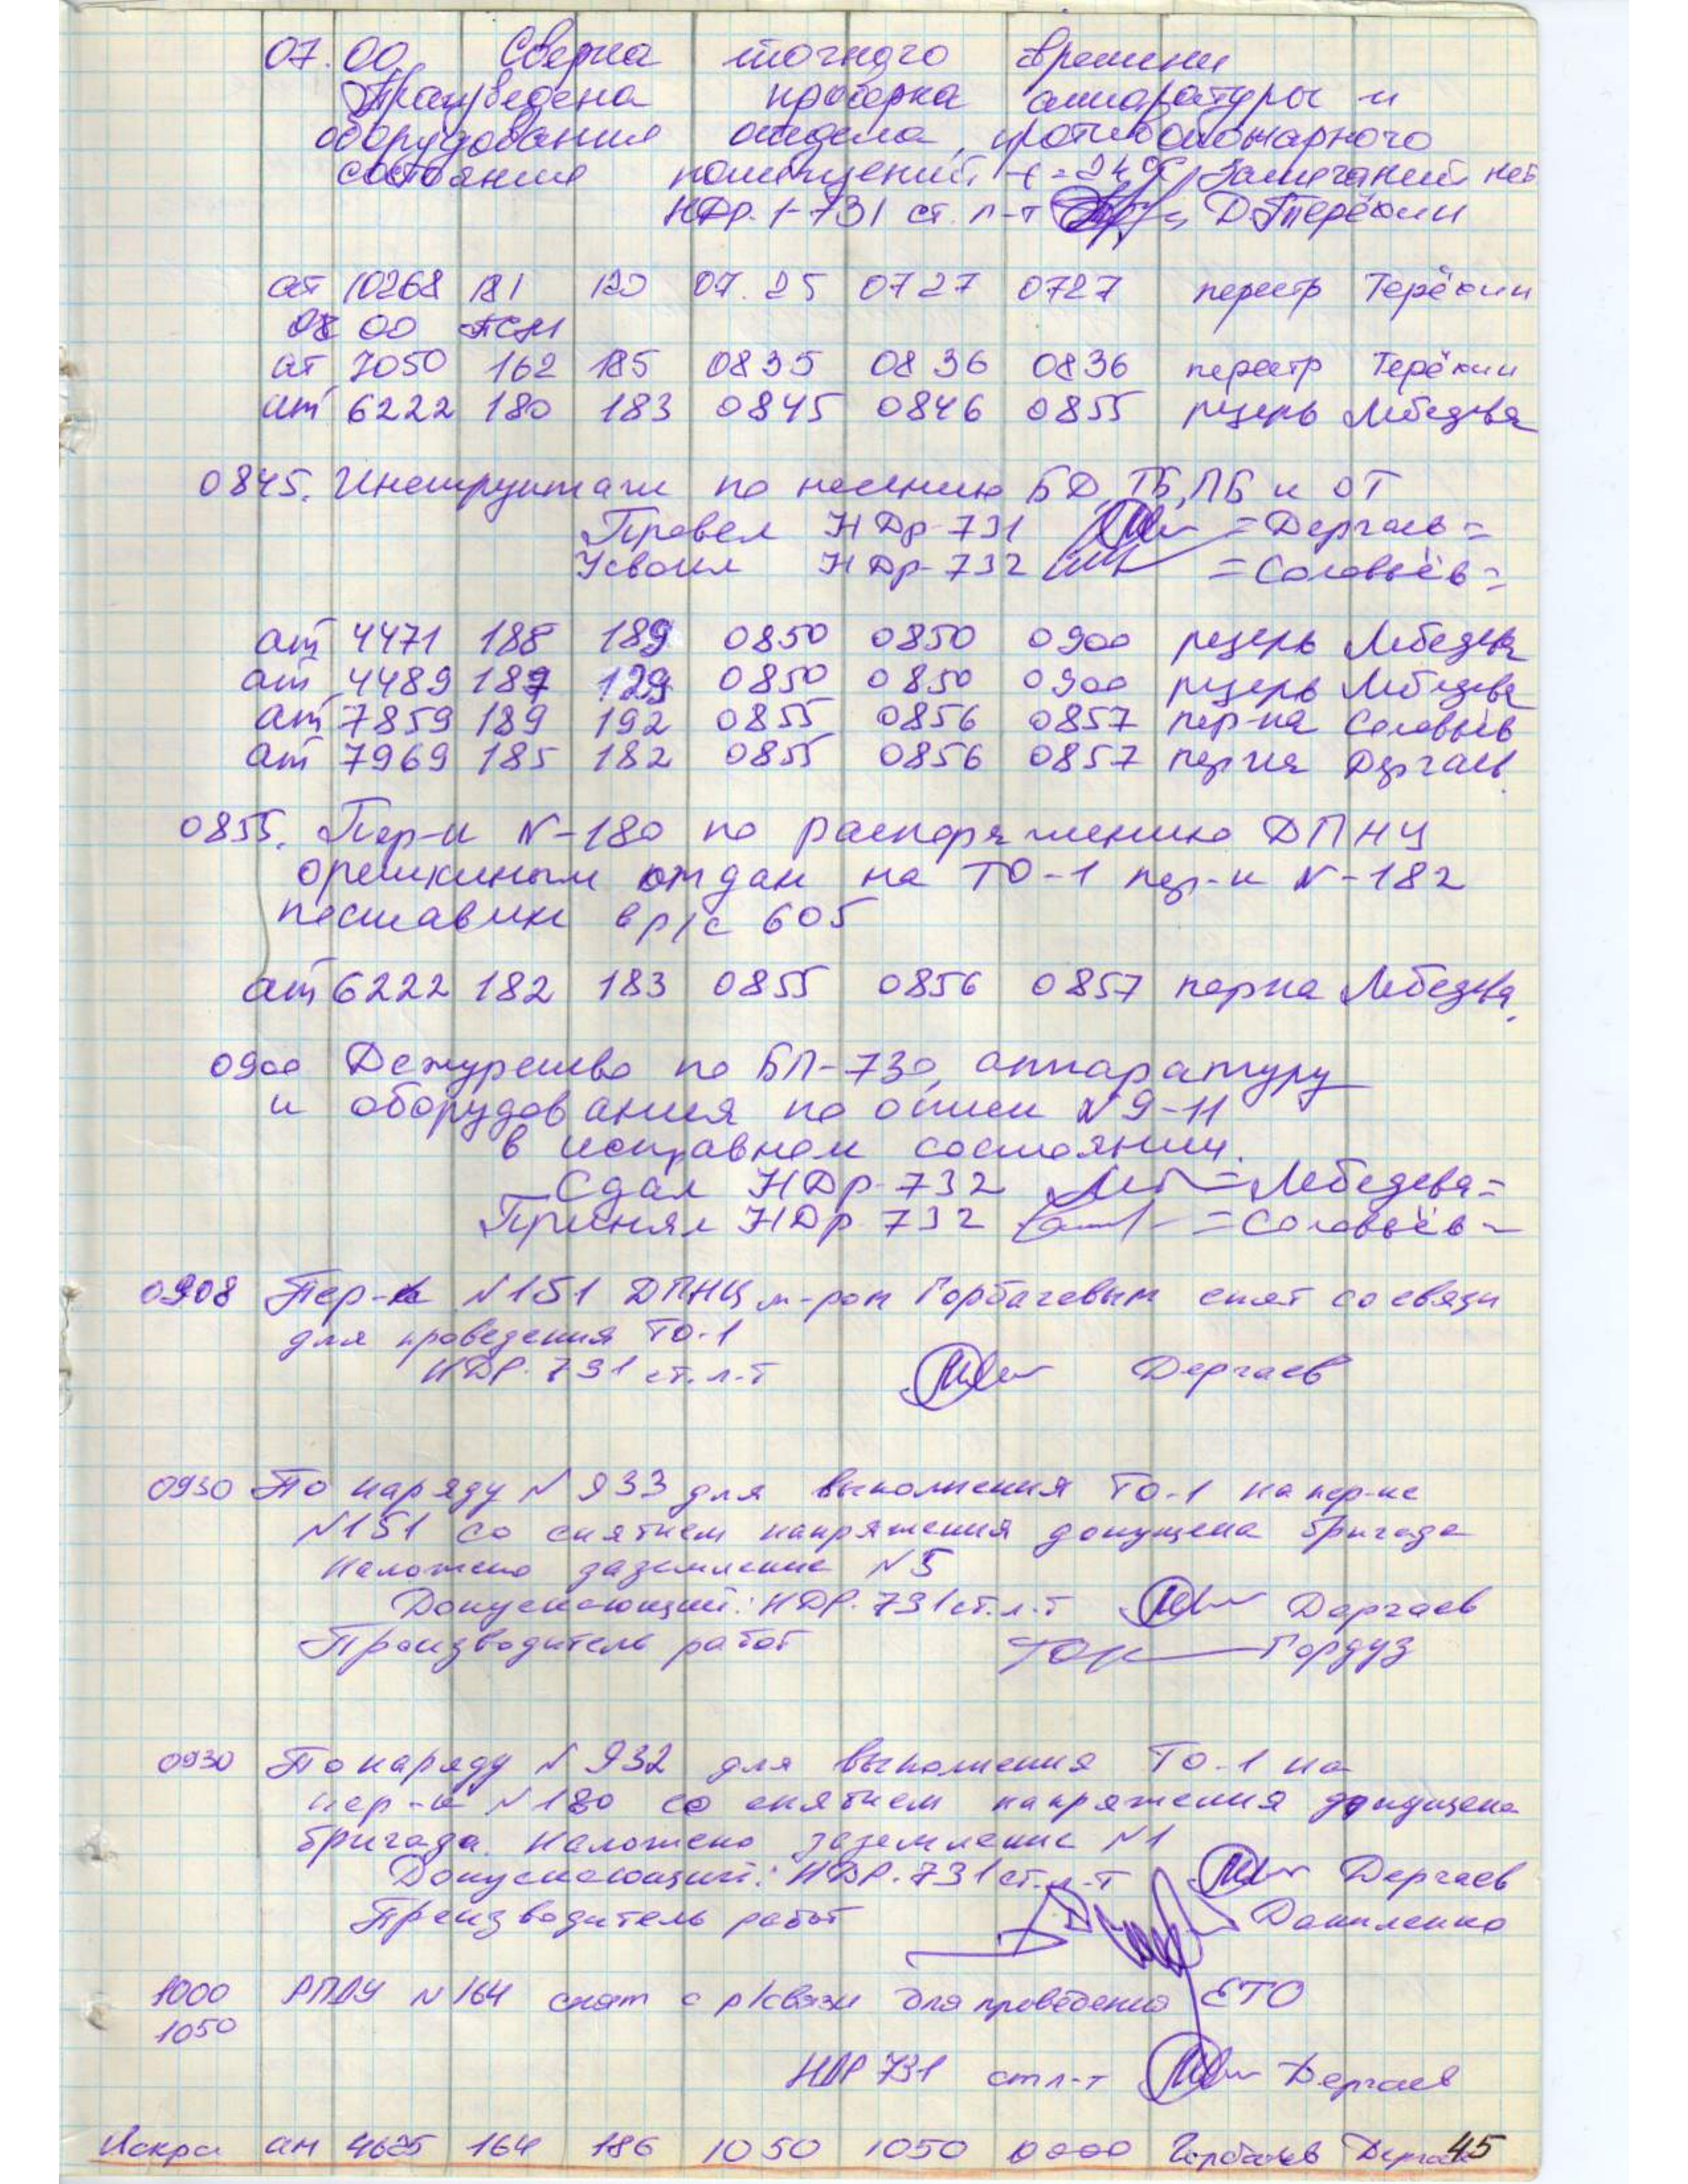 07.00 Сверка точного времени
Произведена проверка аппаратуры и
оборудования отдела, противопожарного
состояние помещений t=24°C, Замечаний нет
НДР. 1-731 ст. л-т Д. Терёхин
ат 10268 181 120 07.25 0727 0727 перестр Терёхин
08 00 ПСМ
ат 7050 162 185 0835 0836 0836 перестр Терёхин
ат 6222 180 183 0845 0846 0855 резерв Лебедева
0845. Инструктаж по несению БД, ТБ, ПБ и ОТ
Провел НДр-731 =Дергаев=
Усвоил НДр-732 =Соловьёв=
ат 4471 188 189 0850 0850 0900 резерв Лебедева
ат 4489 187 129 0850 0850 0900 резерв Лебедева
ат 7859 189 192 0855 0856 0857 пер-ка Соловьёв
ат 7969 185 182 0855 0856 0857 пер-ка Дергаев
0855. Пер-к N-180 по распоряжению ДПНЦ
орешкиным отдан на ТО-1 пер-к N-182
поставлен в р/с 605
ат 6222 182 183 0855 0856 0857 пер-ка Лебедева
0900 Дежурство по БП-730, аппаратуру
и оборудования по описи №9-11
в исправном состоянии.
Сдал НДр-732 =Лебедева=
Принял НДр 732 =Соловьёв=
0908 Пер-к N151 ДПНЦ м-ром Горбачевым снят со связи
для проведения ТО-1
НДР. 731 ст. л-т Дергаев
0930 По наряду N 933 для выполнения ТО-1 на пер-ке
N151 со снятием напряжения допущена бригада
Наложено заземление N5
Допускающий: НДР. 731 ст. л-т Дергаев
Производитель работ Гордуз
0930 По наряду N 932 для выполнения ТО-1 на
пер-к N180 со снятием напряжения допущена
бригада. Наложено заземление N1
Допускающий: НДР. 731 ст. л-т Дергаев
Производитель работ Даниленко
1000 РПДУ N164 снят с р/связи для проведения ЕТО
1050
НДР 731 ст л-т Дергаев
Искра ан 164 186 1050 1050 0000 Горбачев Дергаев 45